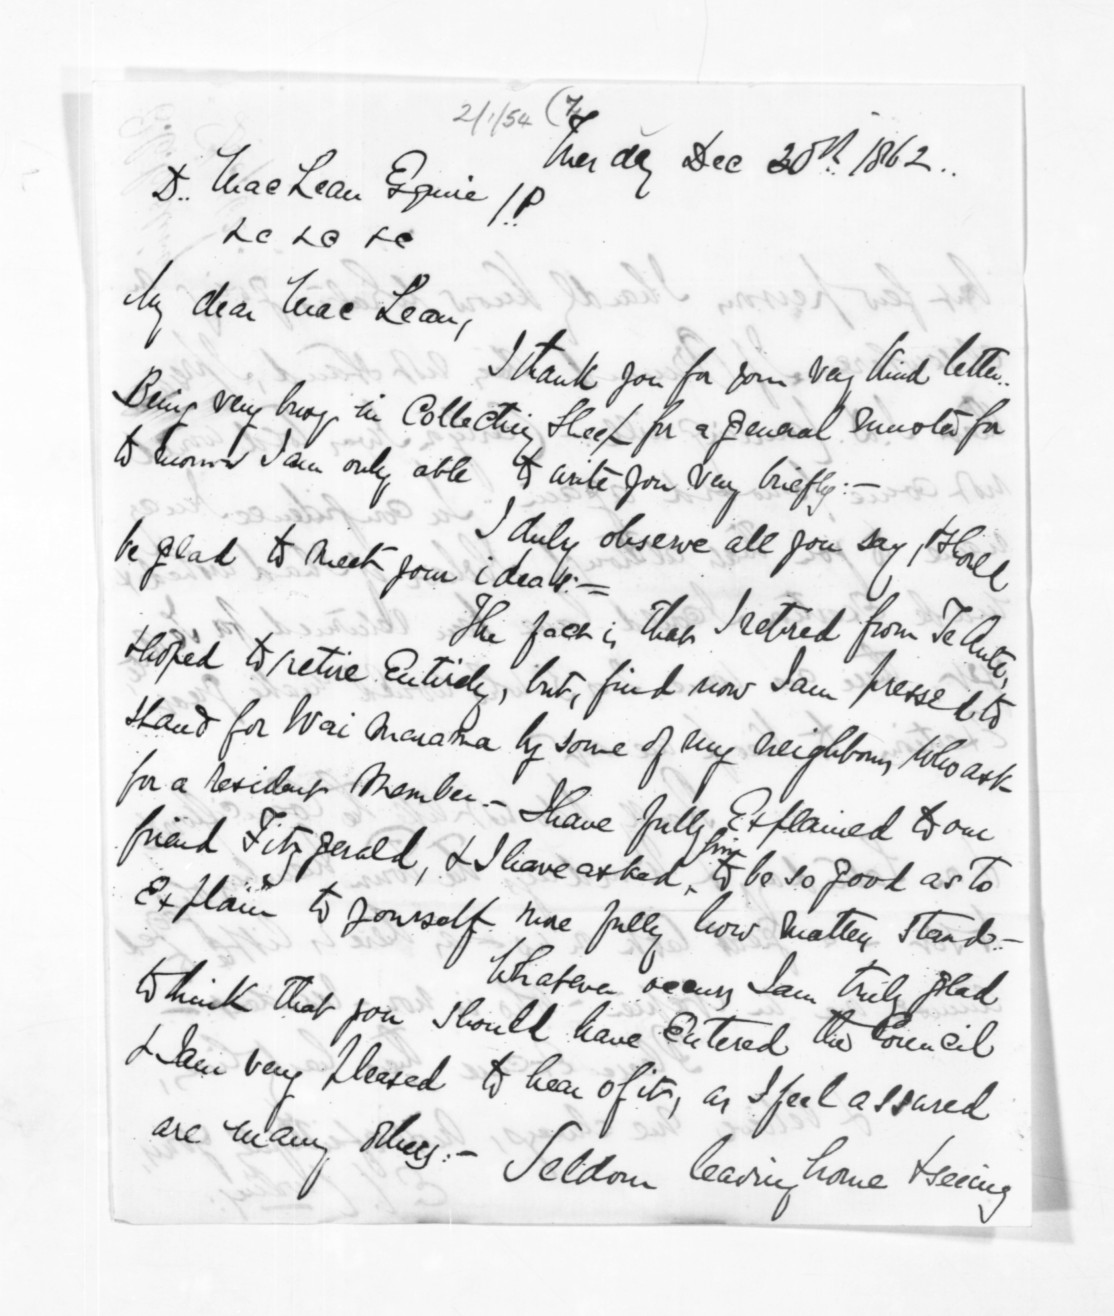 2/1/54
Tuesday Dec 30th 1862..
D.. MacLean Esquire J.P
&c &c &c
My dear Mac Lean,
I thank you for your very kind letter..
Being very busy in Collecting Sheep for a general muster for
to morrow I am only able to write you very briefly:—
I duly observe all you say, & shall
be glad to meet your ideas:—
The fact is that I retired from Te Aute,
& hoped to retire Entirely, but, find now I am pressed to
stand for Wai Marama by some of my neighbours, who ask
for a resident Member.— I have fully Explained to our
friend Fitzgerald, & I have asked him to be so good as to
Explain to yourself more fully how matters stand.—
Whatever occurs, I am truly glad
to think that you should have Entered the Council
& I am very pleased to hear of it, as I feel assured
are many others.— Seldom leaving home & seeing